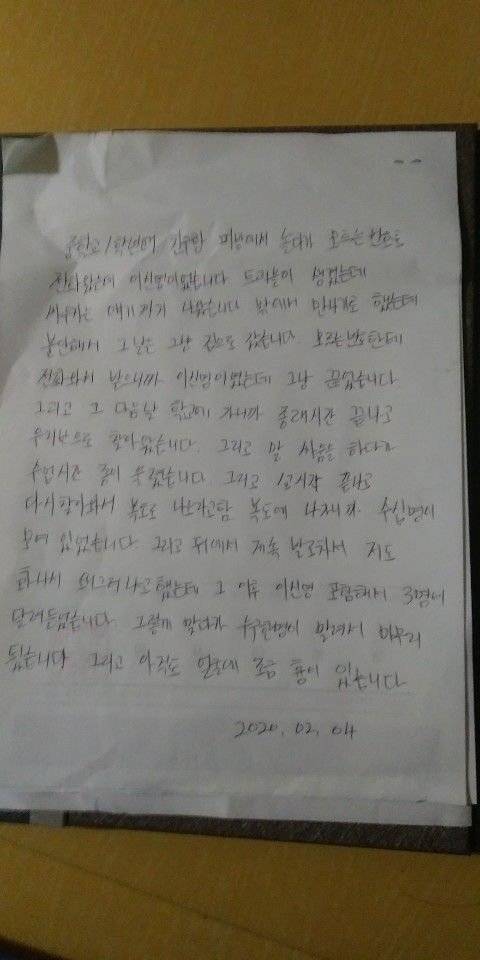 중학교 1학년때 친구랑 피방에서 놀다가 모르는번호로
전화왔는데 이신영이였습니다 트러블이 생겼는데
싸우자는 얘기까지 나왔습니다 밖에서 만나기로 했는데
불안해서 그 날은 그냥 집으로 갔습니다. 모르는번호한테
전화와서 받으니까 이신영이였는데 그냥 끊었습니다
그리고 그 다음날 학교에 가니까 종례시간 끝나고
우리반으로 찾아왔습니다. 그리고 말 싸움을 하다가
수업시간 종이 울렸습니다. 그리고 1교시가 끝나고
다시찾아와서 복도로 나오라고함 복도에 나가니까 수십명이
모여 있었습니다. 그리고 뒤에서 계속 발로차서 저도
화나서 했는데 그 이후 이신영 포함해서 3명이
달려들었습니다. 그렇게 맞다가 말려서 마무리
됬습니다 그리고 아직도 얼굴에 조금 흉이 있습니다
2020. 02. 04